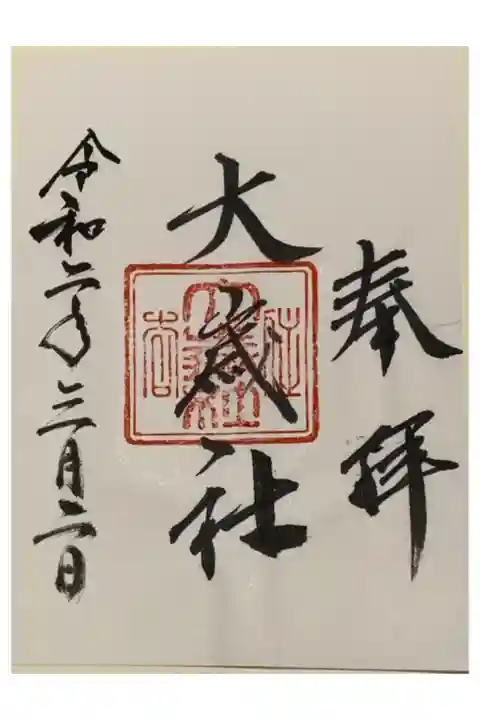 奉拝
大歳社
令和二年三月二日